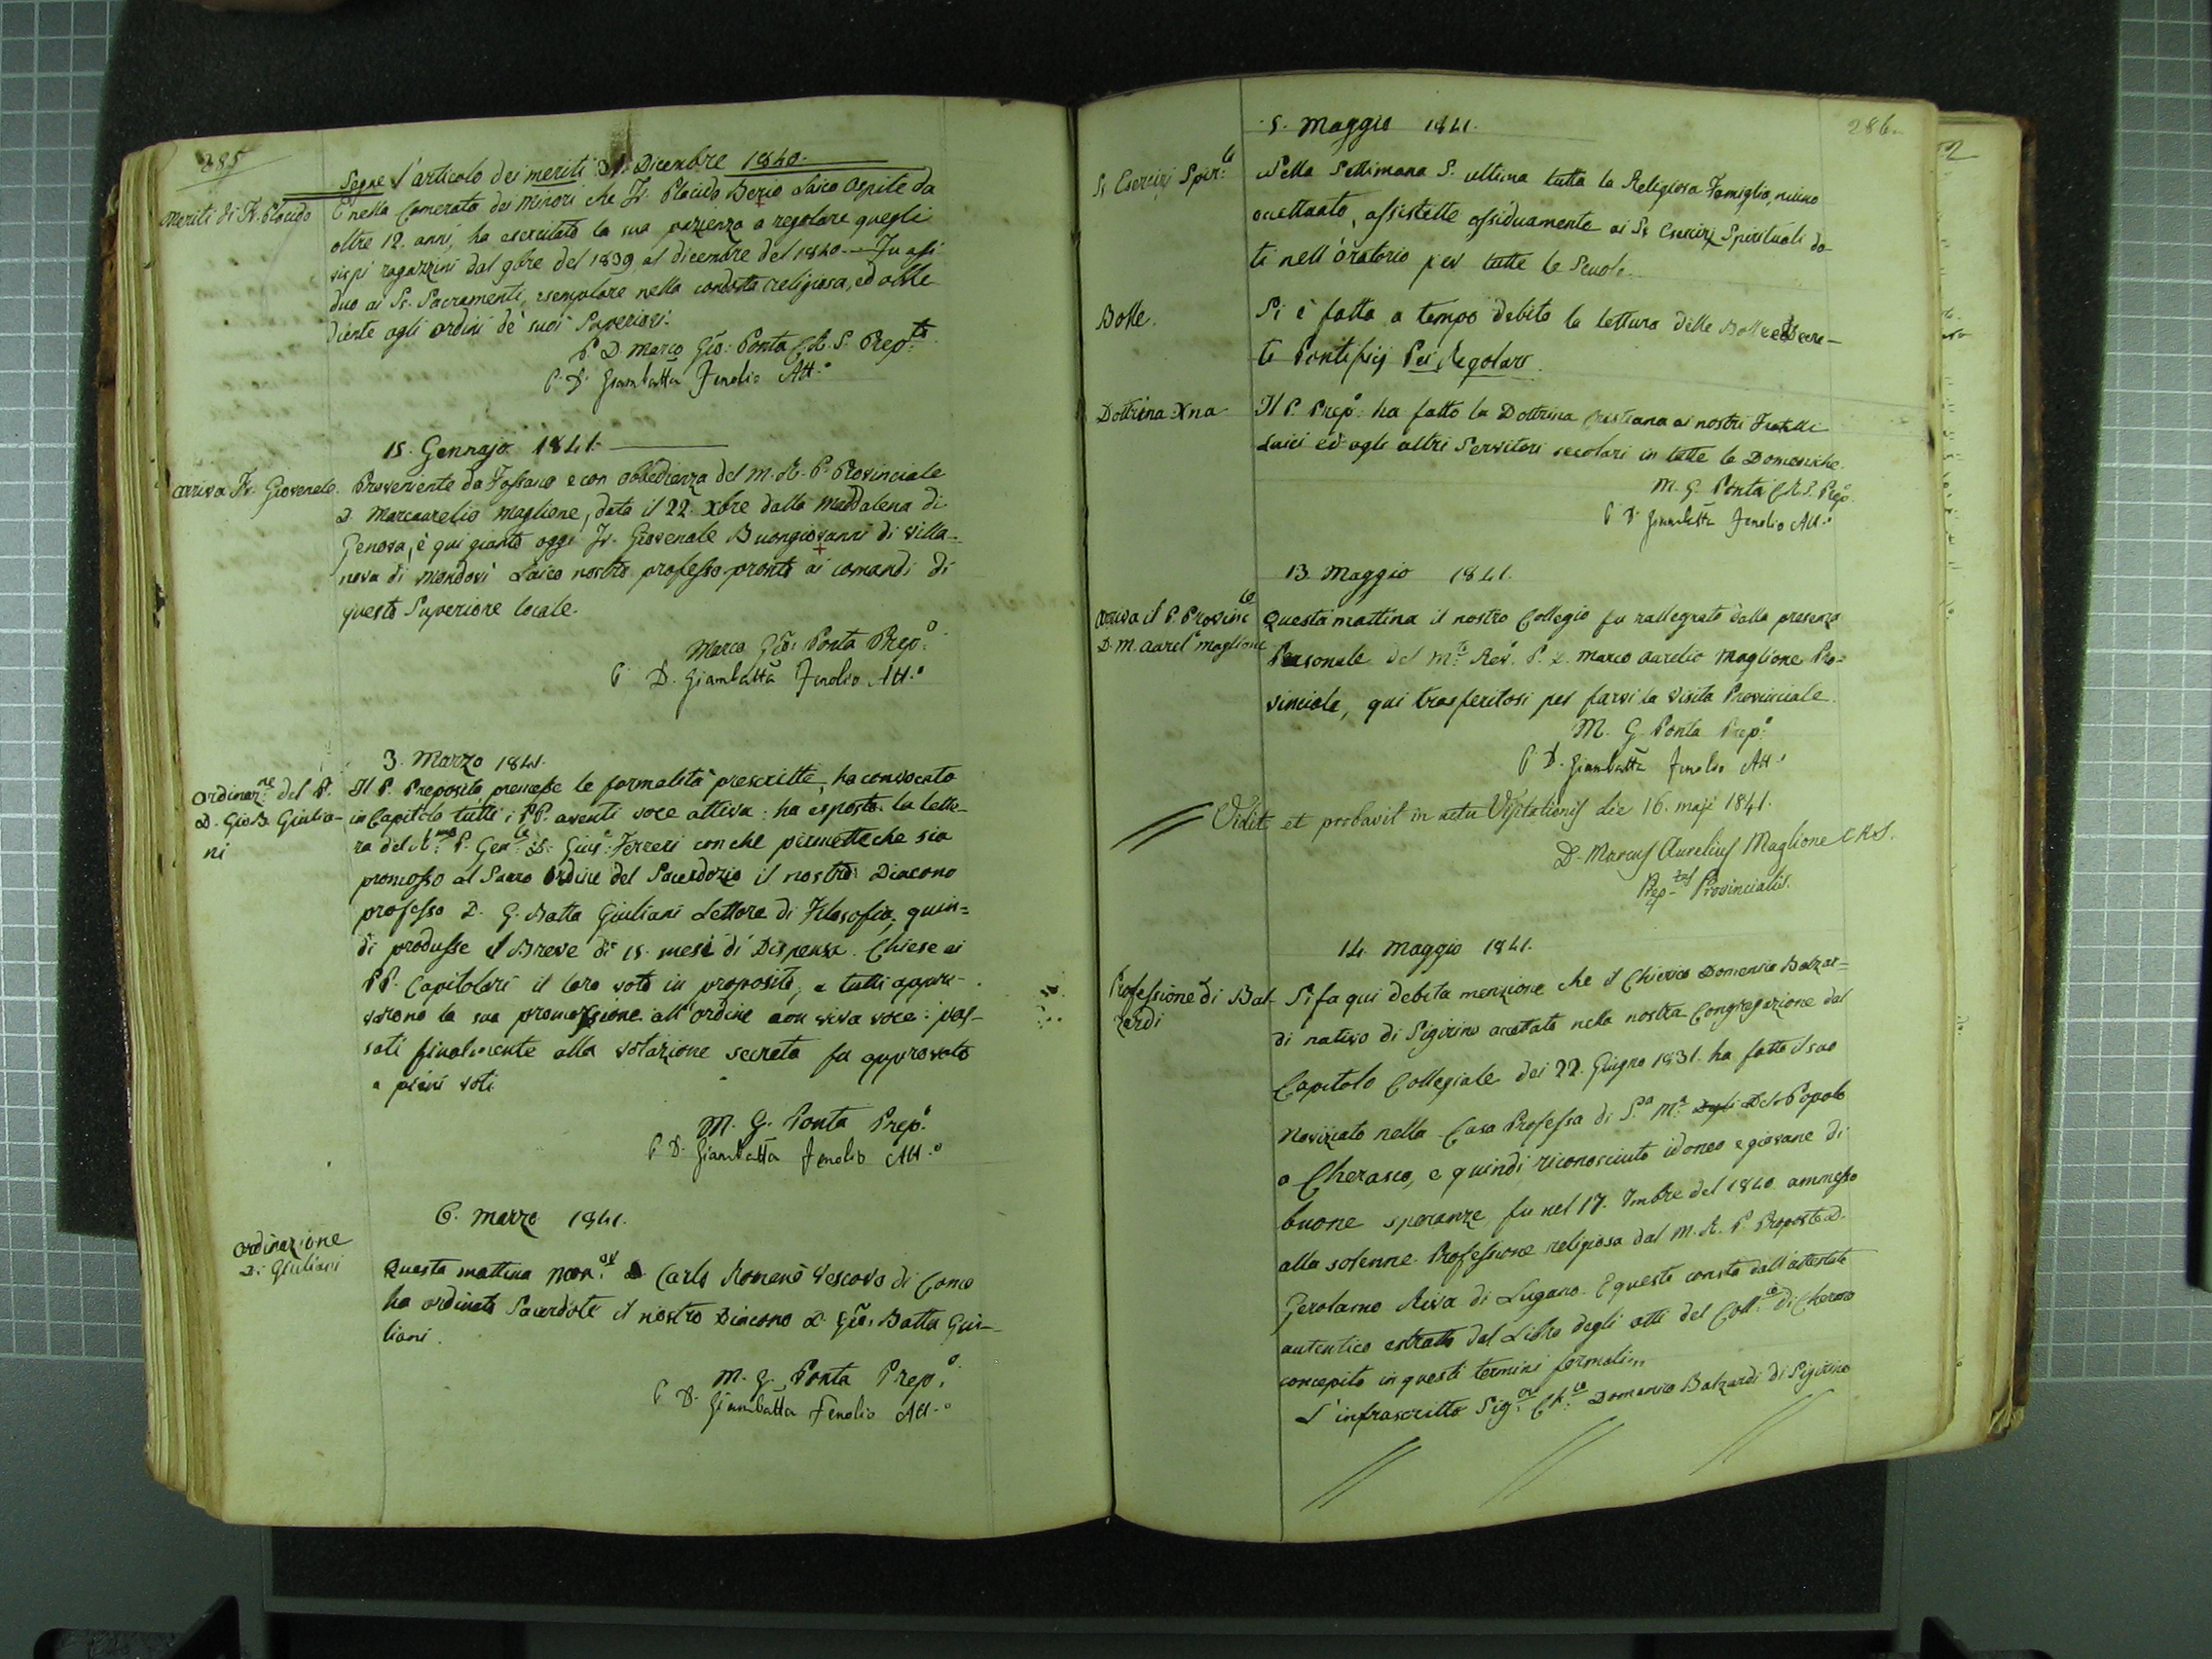 285
Segue l'articolo dei meriti 31. Dicembre 1840.
Meriti di Fr. Placido
E nella Camerata dei Minori che Fr. Placido Berio Laico Ospite da
oltre 12. anni, ha esercitato la sua pazienza a regolare quegli
vispi ragazzini dal 9bre del 1839 al dicembre del 1840. Fu assi
duo ai Ss. Sacramenti, esemplare nella condotta religiosa, ed obbe
diente agli ordini de' suoi Superiori.
P. D. Marco Gio: Ponta C.R.S. Prep.to
P. D. Giambatta Fenolio Att.o
15. Gennajo 1841.
Arriva Fr. Giovenale.
Proveniente da Fossano e con obbedienza del M. R. P. Provinciale
D. Marcaurelio Maglione, data il 22. Xbre dalla Maddalena di
Genova, è qui giunto oggi Fr. Giovenale Buongiovanni di Villa-
nova di Mondovì Laico nostro professo pronto ai comandi di
questo Superiore locale.
Marco Gio: Ponta Prep.o
P. D. Giambatta Fenolio Att.o
3. Marzo 1841.
Ordinaz.ne del P.
D. Gio. B. Giulia-
ni
Il P. Preposito premesse le formalità prescritte, ha convocato
in Capitolo tutti i PP. aventi voce attiva: ha esposto la lette-
ra del R.mo P. Gen.le D. Gius.e Ferreri con che permette che sia
promosso al Sacro Ordine del Sacerdozio il nostro Diacono
professo D. G. Batta Giuliani Lettore di Filosofia, quin=
di produsse il Breve di 15. mesi di Dispensa. Chiese ai
PP. Capitolari il loro voto in proposito, e tutti appro-
varono la sua promozione all'ordine con viva voce: pas-
sati finalmente alla votazione secreta fu approvato
a pieni voti
M. G. Ponta Prep.o
P. D. Giambatta Fenolio Att.o
6. Marzo 1841.
Ordinazione
Di Giuliani
Questa mattina Mon.or Carlo Romenò Vescovo di Como
ha ordinato Sacerdote il nostro Diacono D. Gio. Batta Giu-
liani.
M. G. Ponta Prep.o
P. D. Giambatta Fenolio Att.o
286
5. Maggio 1841.
Ss. Esercizj Spir.li
Nella Settimana S. ultima tutta la Religiosa Famiglia, niuno
eccettuato, assistette assiduamente ai Ss. Esercizj Spirituali da-
ti nell'Oratorio per tutte le Scuole.
Bolle.
Si è fatta a tempo debito la lettura delle Bolle e Decre-
ti Pontificj Pei Regolari.
Dottrina Xna
Il P. Prep.o ha fatto la Dottrina Cristiana ai nostri Fratelli
Laici ed agli altri Servitori secolari in tutte le Domeniche.
M. G. Ponta C.R.S. Prep.o
P. D. Giambatta Fenolio Att.o
13. Maggio 1841.
Arriva il P. Provinc.le
D. M. Aurel.o Maglione
Questa mattina il nostro Collegio fu rallegrato dalla presenza
Personale del M.to Rev. P. D. Marco Aurelio Maglione Pro=
vinciale, qui trasferitosi per farvi la Visita Provinciale.
M. G. Ponta Prep.o
P. D. Giambatta Fenolio Att.o
Vidit et probavit in actu Visitationis die 16. maji 1841.
D. Marcus Aurelius Maglione C.R.S.
Prep.tus Provincialis.
14. Maggio 1841.
Professione di Bal-
zardi
Si fa qui debita menzione che il Chierico Domenico Balzar=
di nativo di Sigirino accettato nella nostra Congregazione dal
Capitolo Collegiale dei 22. Giugno 1831. ha fatto il suo
Noviziato nella Casa Professa di S.a M.a Degli Del Popolo
a Cherasco, e quindi riconosciuto idoneo e giovane di
buone speranze fu nel 17. 9mbre del 1840 ammesso
alla solenne Professione religiosa dal M. R. P. Proposto D.
Gerolamo Riva di Lugano. E questo consta dall'attestato
autentico estratto dal Libro degli atti del Coll.io di Cherasco
concepito in questi termini formali:
L'infrascritto Sig.or Ch.co Domenico Balzardi di Sigirino